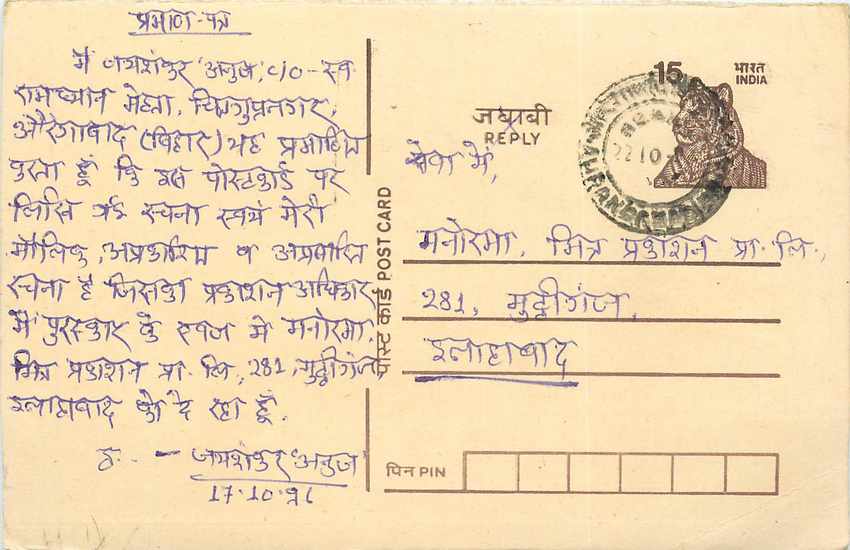 प्रमाण-पत्र
मैं जयशंकर 'अनुज', c/o - स्व.
रामध्यान मेहता, चित्रगुप्तनगर,
औरंगाबाद (बिहार) यह प्रमाणित
करता हूँ कि इस पोस्टकार्ड पर
लिखि गई रचना स्वयं मेरी
मौलिक, अप्रकाशित व अप्रसारित
रचना है जिसका प्रकाशन अधिकार
मैं पुरस्कार के एवज में मनोरमा,
मित्र प्रकाशन प्रा. लि., 281, मुट्ठीगंज,
इलाहाबाद को दे रहा हूँ.
ह. - जयशंकर 'अनुज'
17.10.
पोस्ट कार्ड POST CARD
जवाबी
REPLY
15
भारत
INDIA
22 10
सेवा में,
मनोरमा, मित्र प्रकाशन प्रा. लि.,
281, मुट्ठीगंज,
इलाहाबाद
पिन PIN